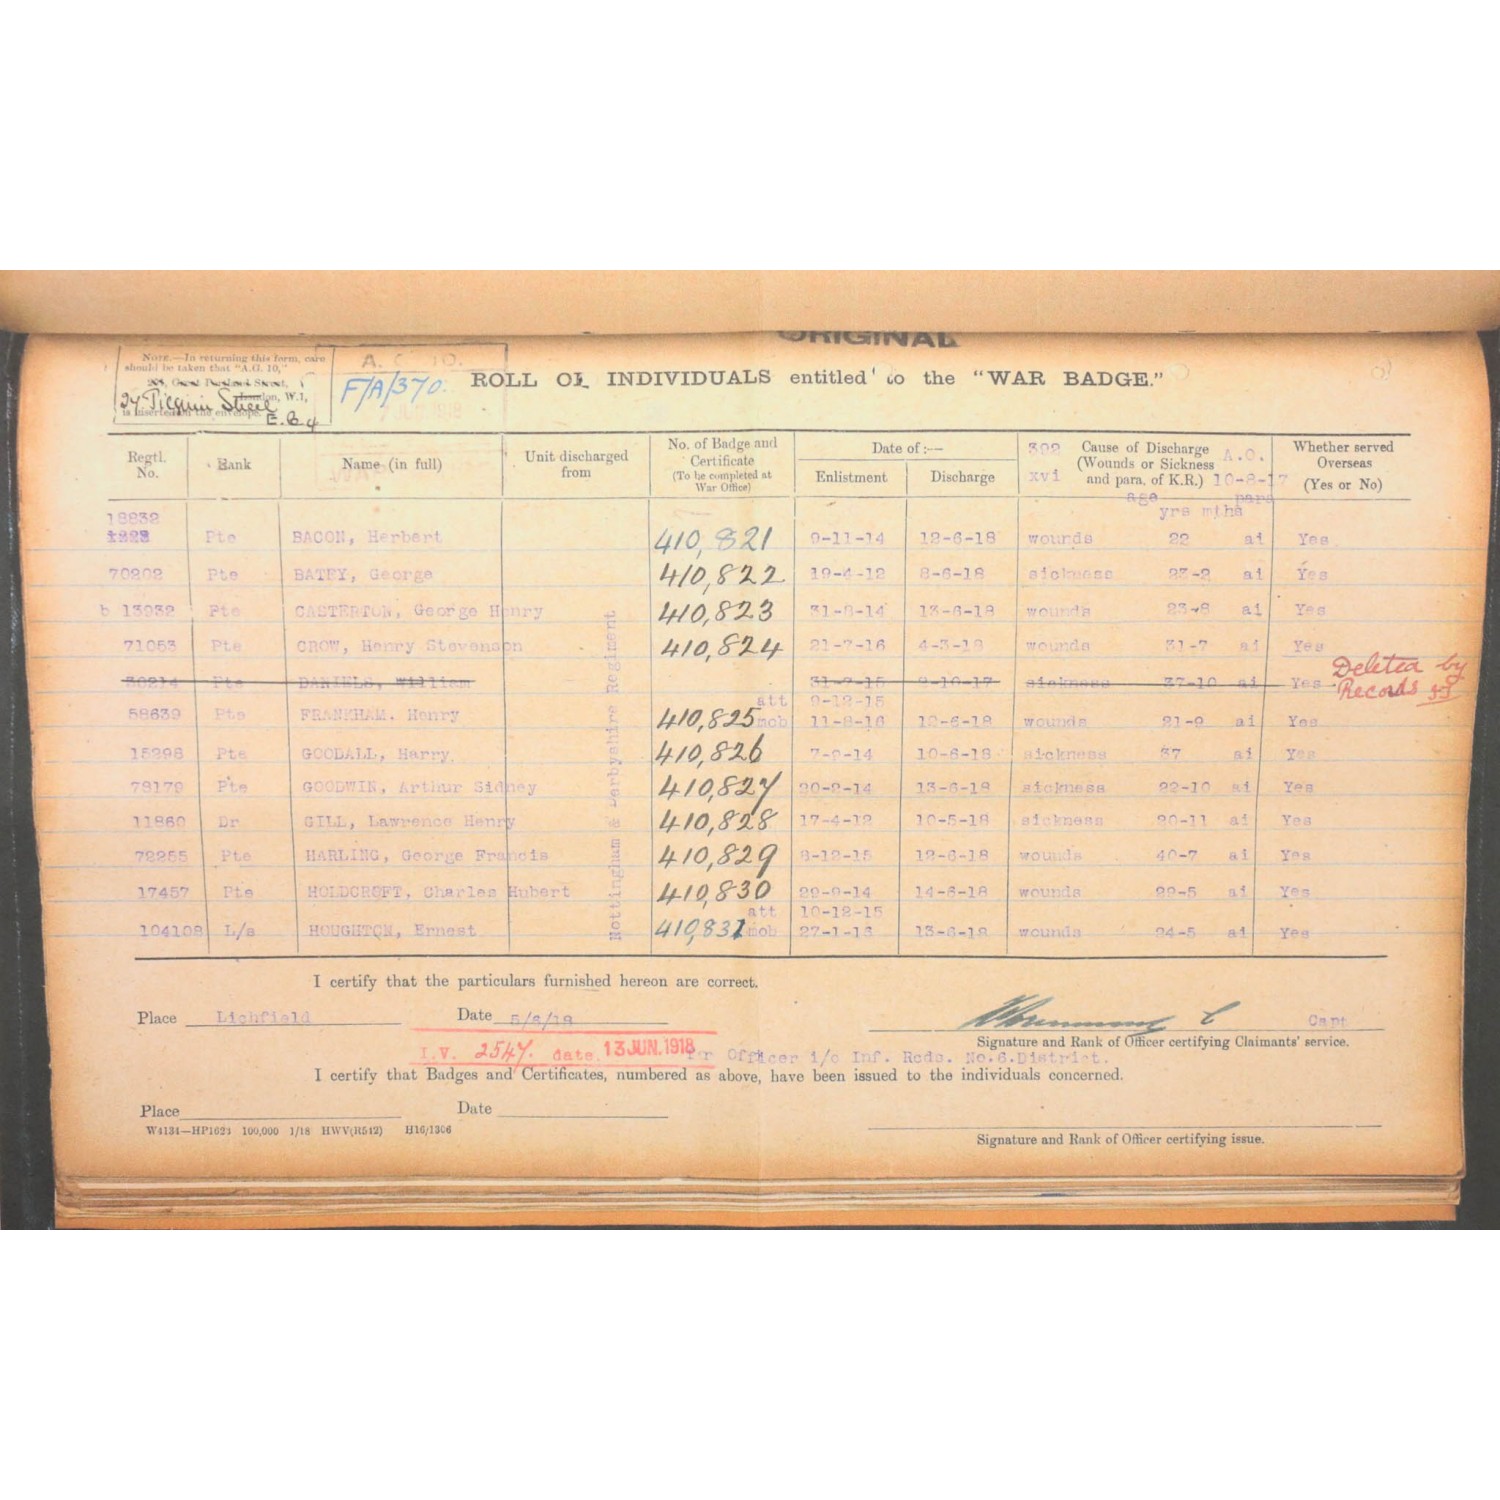 ORIGINAL
NOTE.—In returning this form, care
should be taken that "A.G. 10,"
London, W.1,
27 Pilgrim Street
is inserted on the envelope.
E.C.4
F/A/370.
ROLL OF INDIVIDUALS entitled to the "WAR BADGE."
Regtl. No. Rank Name (in full) Unit discharged from No. of Badge and Certificate (To be completed at War Office) Date of:— Enlistment Discharge 392 xvi Cause of Discharge (Wounds or Sickness and para. of K.R.) A.O. 10-8-17 Whether served Overseas (Yes or No)
age para
yrs mths
18832
1223 Pte BACON, Herbert 410,821 9-11-14 12-6-18 wounds 22 ai Yes
70202 Pte BATEY, George 410,822 19-4-12 8-6-18 sickness 23-2 ai Yes
b 13932 Pte CASTERTON, George Henry 410,823 31-8-14 13-6-18 wounds 23-8 ai Yes
71053 Pte CROW, Henry Stevenson 410,824 21-7-16 4-3-18 wounds 31-7 ai Yes
30214 Pte DANIELS, William 31-7-15 9-10-17 sickness 37-10 ai Yes Deleted by Records
att 9-12-15
58639 Pte FRANKHAM, Henry 410,825 mob 11-8-16 12-6-18 wounds 21-9 ai Yes
15298 Pte GOODALL, Harry 410,826 7-9-14 10-6-18 sickness 37 ai Yes
78179 Pte GOODWIN, Arthur Sidney 410,827 20-2-14 13-6-18 sickness 22-10 ai Yes
11860 Dr GILL, Lawrence Henry 410,828 17-4-12 10-5-18 sickness 20-11 ai Yes
72255 Pte HARLING, George Francis 410,829 8-12-15 12-6-18 wounds 40-7 ai Yes
17457 Pte HOLDCROFT, Charles Hubert 410,830 29-9-14 14-6-18 wounds 22-5 ai Yes
att 10-12-15
104108 L/s HOUGHTON, Ernest 410,831 mob 27-1-16 13-6-18 wounds 24-5 ai Yes
Nottingham & Derbyshire Regiment
I certify that the particulars furnished hereon are correct.
Place Lichfield Date 5/6/18 Capt
Signature and Rank of Officer certifying Claimants' service.
I.V. 2547. date. 13 JUN. 1918 for Officer i/c Inf. Rcds. No.6.District.
I certify that Badges and Certificates, numbered as above, have been issued to the individuals concerned.
Place Date
W4134—HP1623 100,000 1/18 HWV(R542) H16/1306
Signature and Rank of Officer certifying issue.